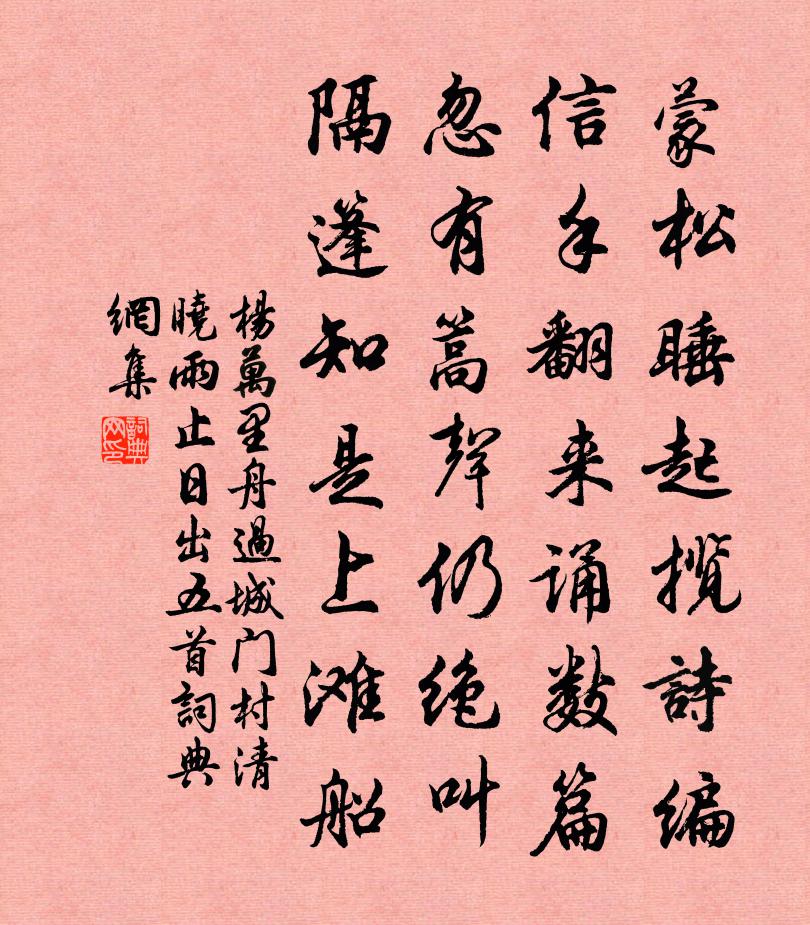 蒙松睡起揽詩编
信手翻来诵数篇
忽有篙聲仍绝叫
隔篷知是上滩船
楊萬里舟過城门村清
曉雨止日出五首詞典
網集
詞典
网印